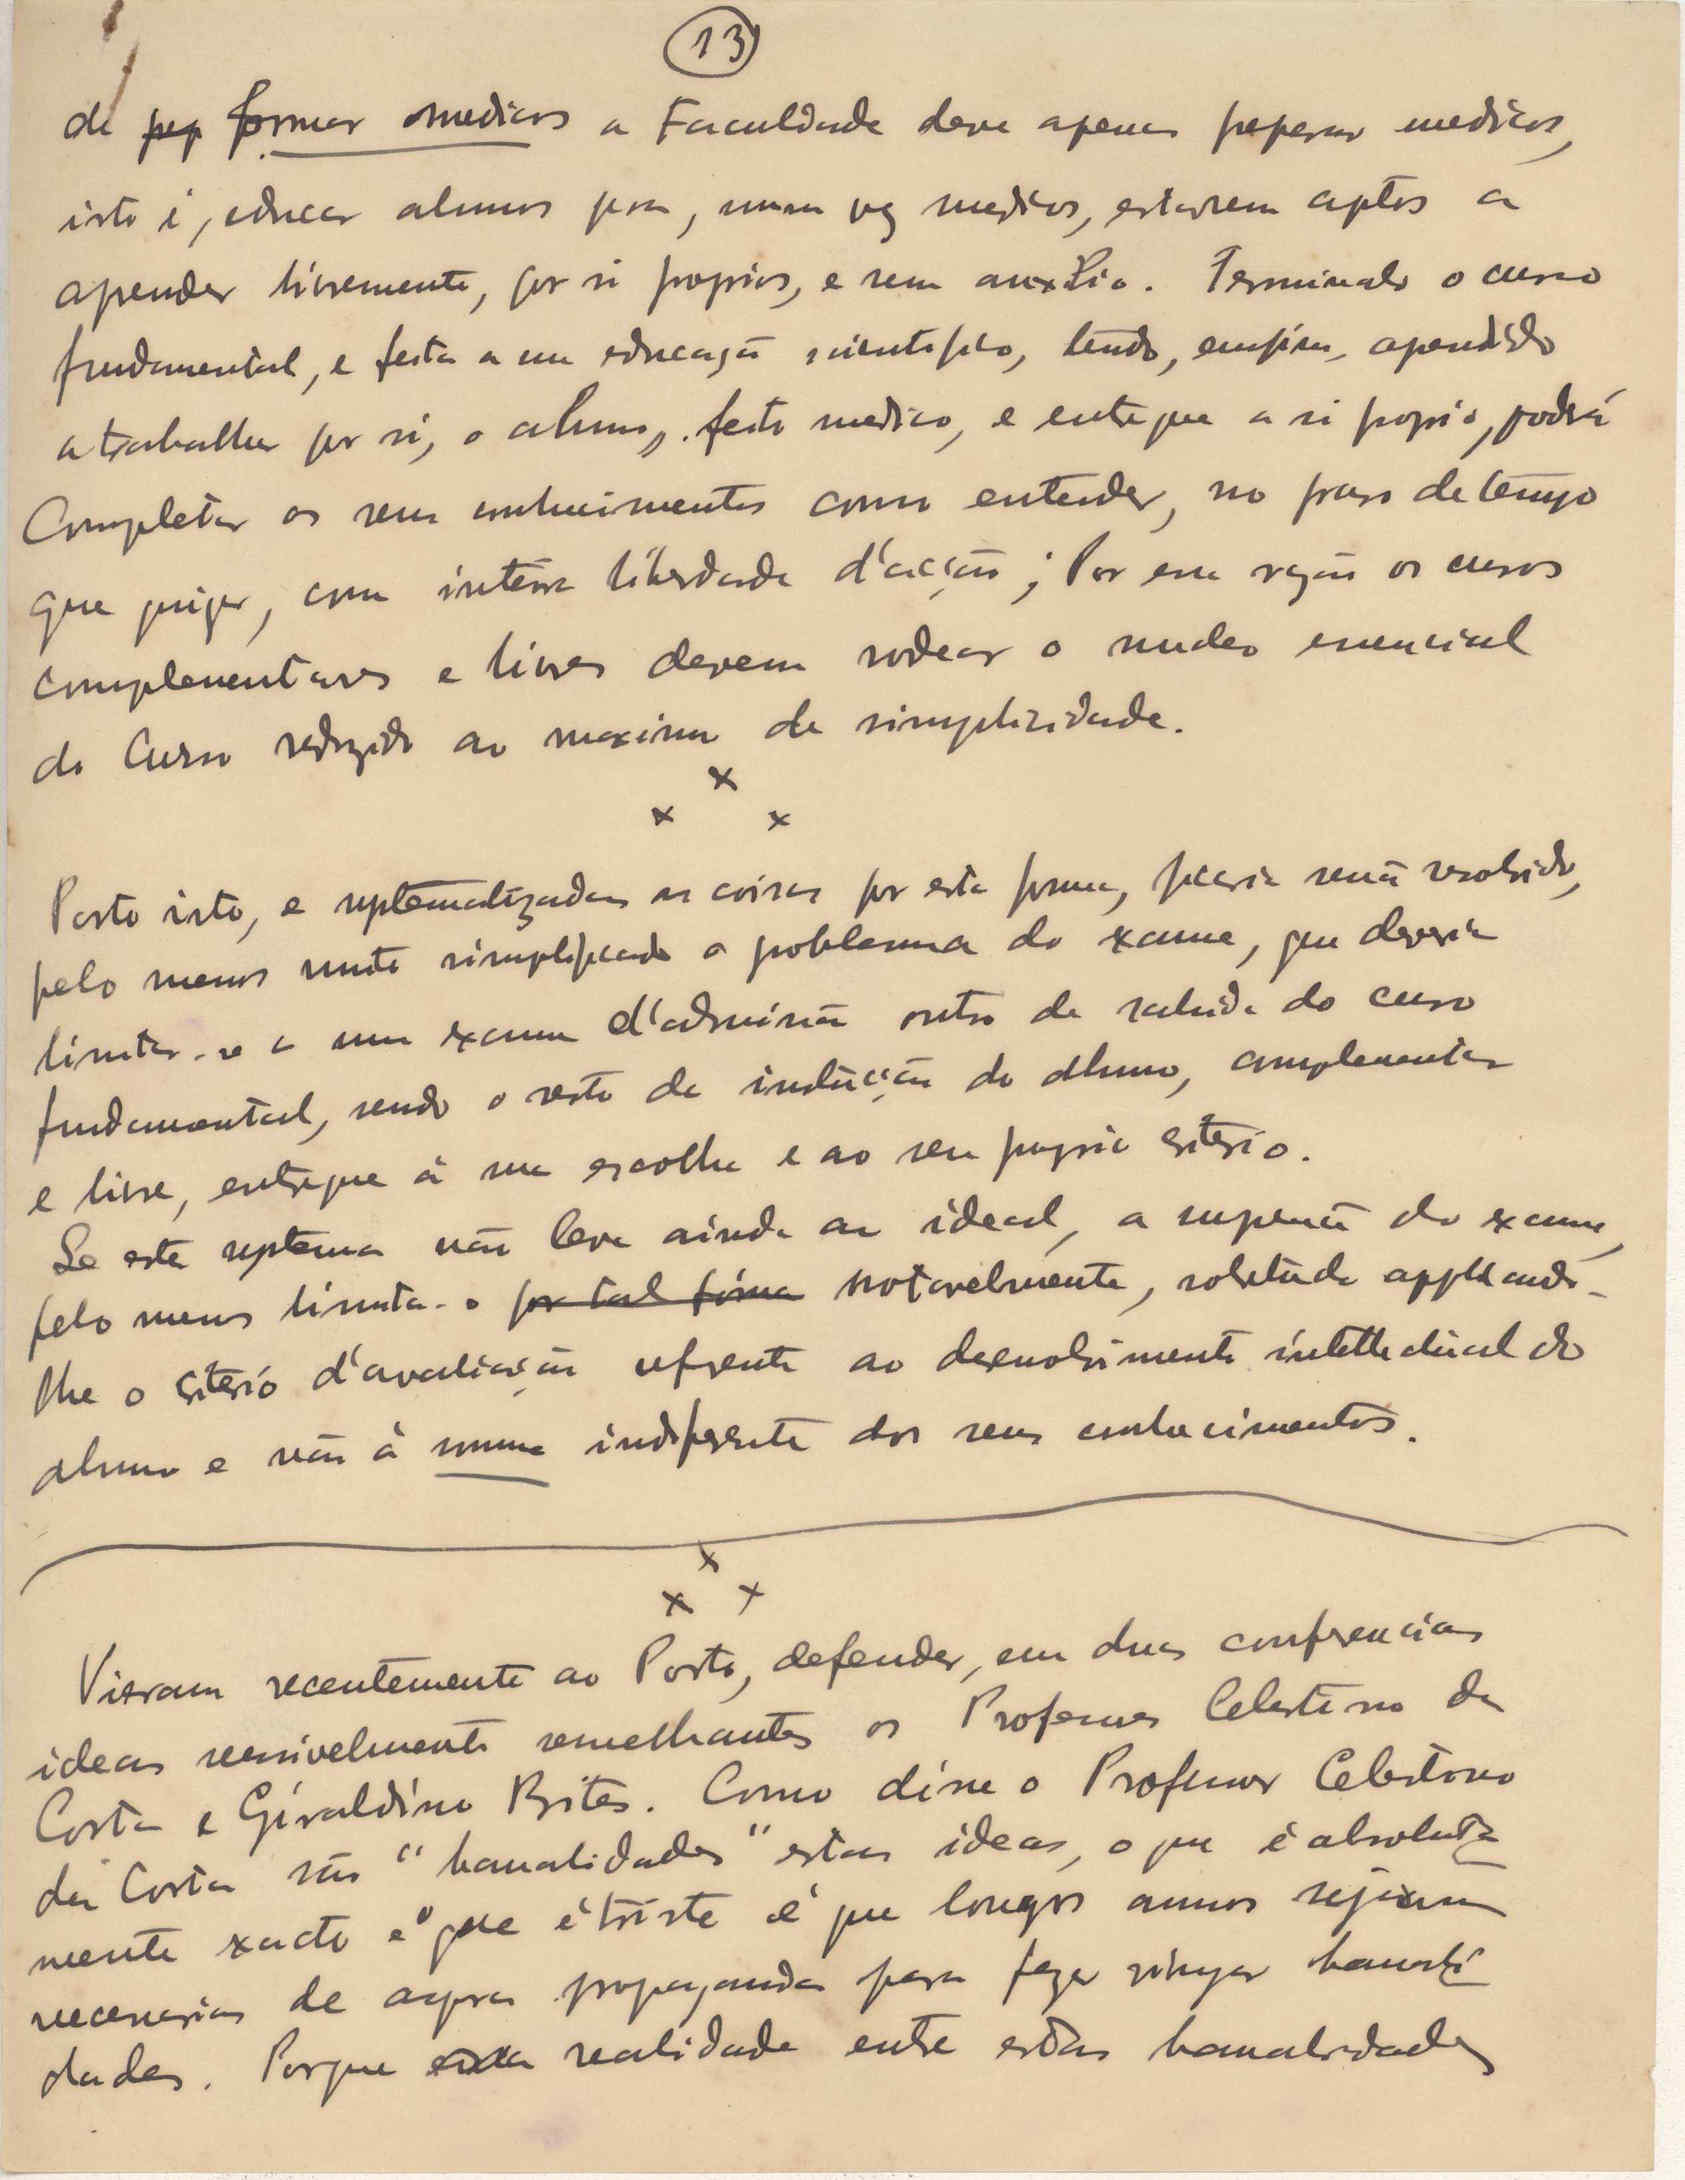 13
de pep formar medicos a Faculdade deve apenas preparar medicos,
isto é, educar alumnos para, uma vez medicos, estarem aptos a
aprender livremente, por si proprios, e sem auxilio. Terminado o curso
fundamental, e feita a sua educação scientifica, tendo, emfim, aprendido
a trabalhar por si, o alumno, feito medico, e entregue a si proprio, poderá
Completar os seus conhecimentos como entender, no praso de tempo
que quizer, com inteira liberdade d'acção; Por essa razão os cursos
complementares e livres devem rodear o nucleo essencial
do Curso reduzido ao maximo de simplicidade.
x
x x
Posto isto, e systematizadas as coisas por esta forma, ficaria senão resolvido,
pelo menos muito simplificado o problema do exame, que deveria
limitar-se a um exame d'admissão outro de sahida do curso
fundamental, sendo o resto da instrucção do alumno, complementar
e livre, entregue á sua escolha e ao seu proprio criterio.
Se este systema não leva ainda ao ideal, a supressão do exame,
pelo menos limita-o por tal fórma notavelmente, sobretudo applicando-
lhe o criterio d'avaliação referente ao desenvolvimento intellectual do
alumno e não á somma indifferente dos seus conhecimentos.
x
x x
Vieram recentemente ao Porto, defender, em duas conferencias
ideas sensivelmente semelhantes os Professores Celestino da
Costa e Géraldino Brites. Como disse o Professor Celestino
da Costa são "banalidades" estas ideas, o que é absoluta
mente exacto e o que é triste é que longos annos sejam
necessarios de aspra propaganda para fazer vingar banali
dades. Porque realidade entre estas banalidades